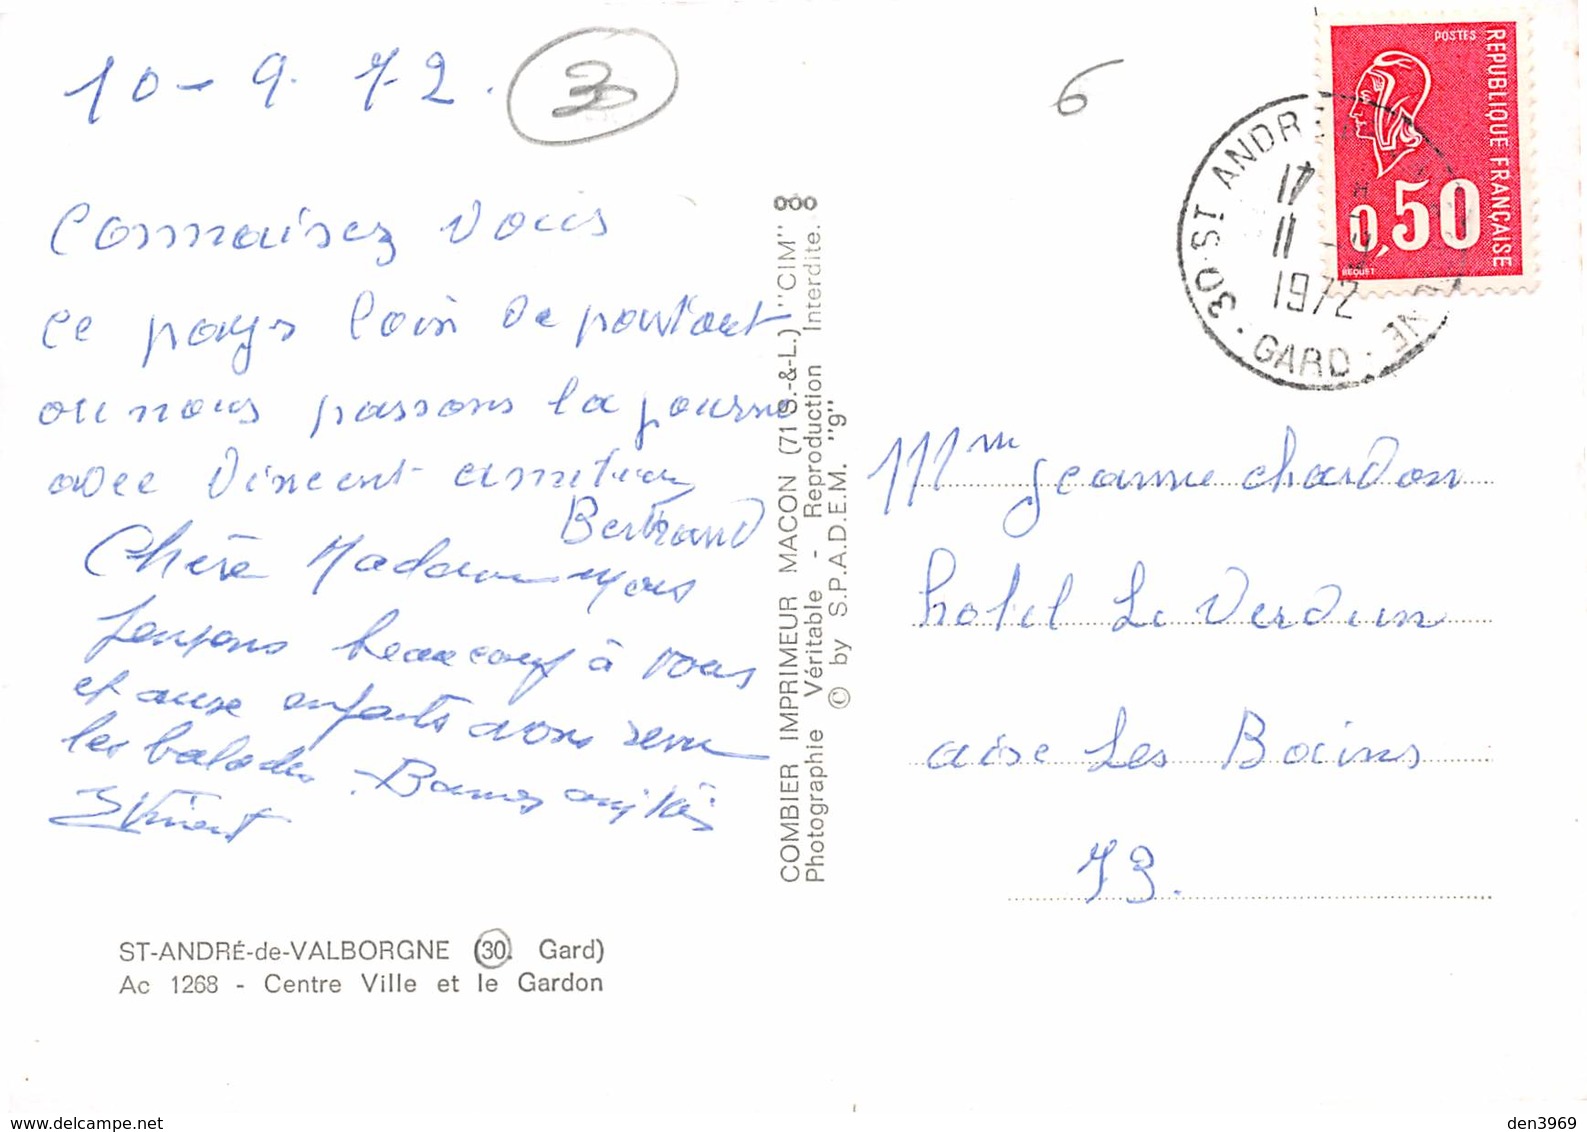 10-9.72.
30
6
POSTES
REPUBLIQUE FRANÇAISE
0,50
BEQUET
30 ST ANDR NE
17
11 - 9
1972
GARD
Connaisez vous
ce pays loin de partout
ou nous passons la journe
avec Vincent amities
Bertrand
Chère Madame nous
pensons beaucoup à vous
et aux enfants avons
les balades. Bonnes amitiés
Vincent
COMBIER IMPRIMEUR MACON (71 S.-&-L.) "CIM"
Photographie Véritable - Reproduction Interdite.
© by S.P.A.D.E.M. "9"
Mme Jeanne chardon
hotel Le Verdun
aise Les Bains
73.
ST-ANDRÉ-de-VALBORGNE (30. Gard)
Ac 1268 - Centre Ville et le Gardon
den3969